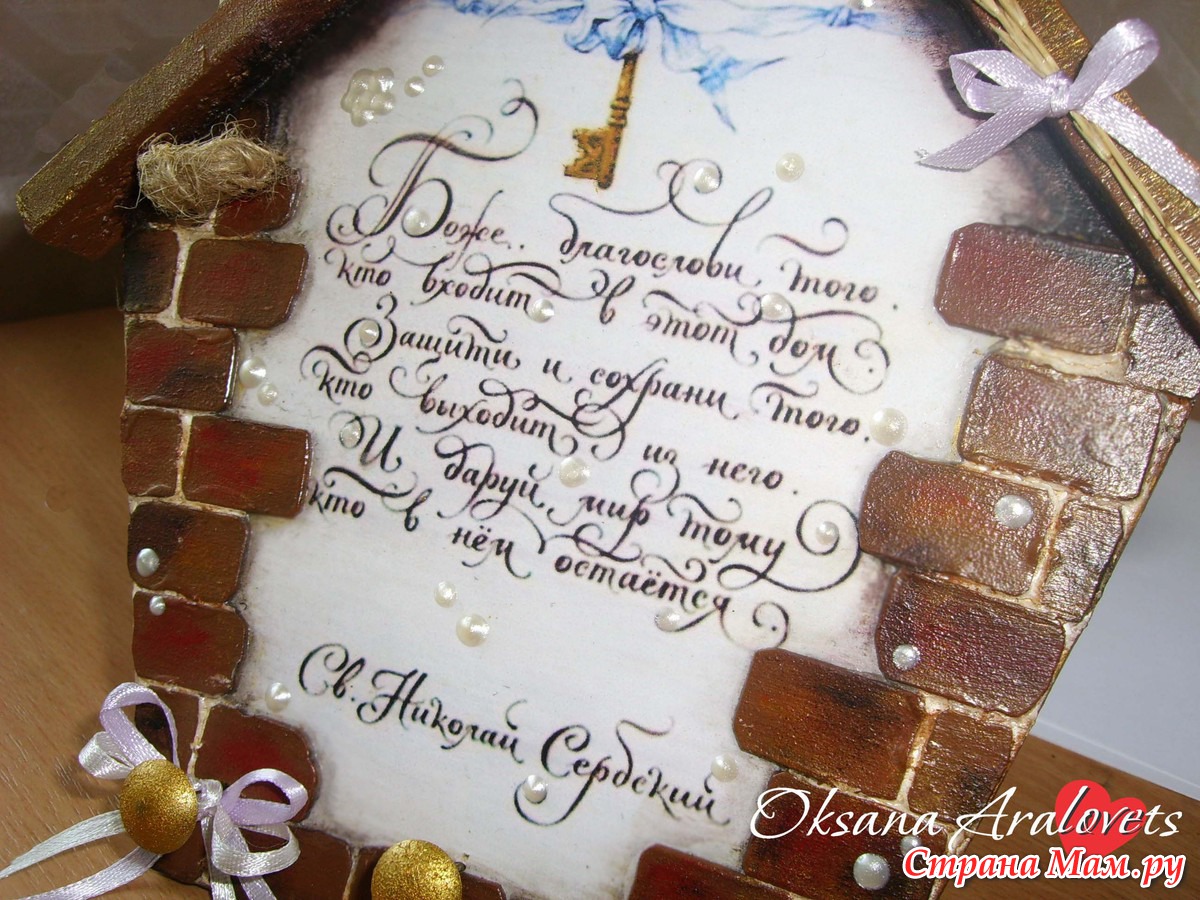 Боже.. благослови того.
кто входит в этот дом.
Защити и сохрани того.
кто выходит из него.
И даруй мир тому
кто в нём остаётся.
Св. Николай Сербский
Oksana Aralovets
Страна Мам.ру